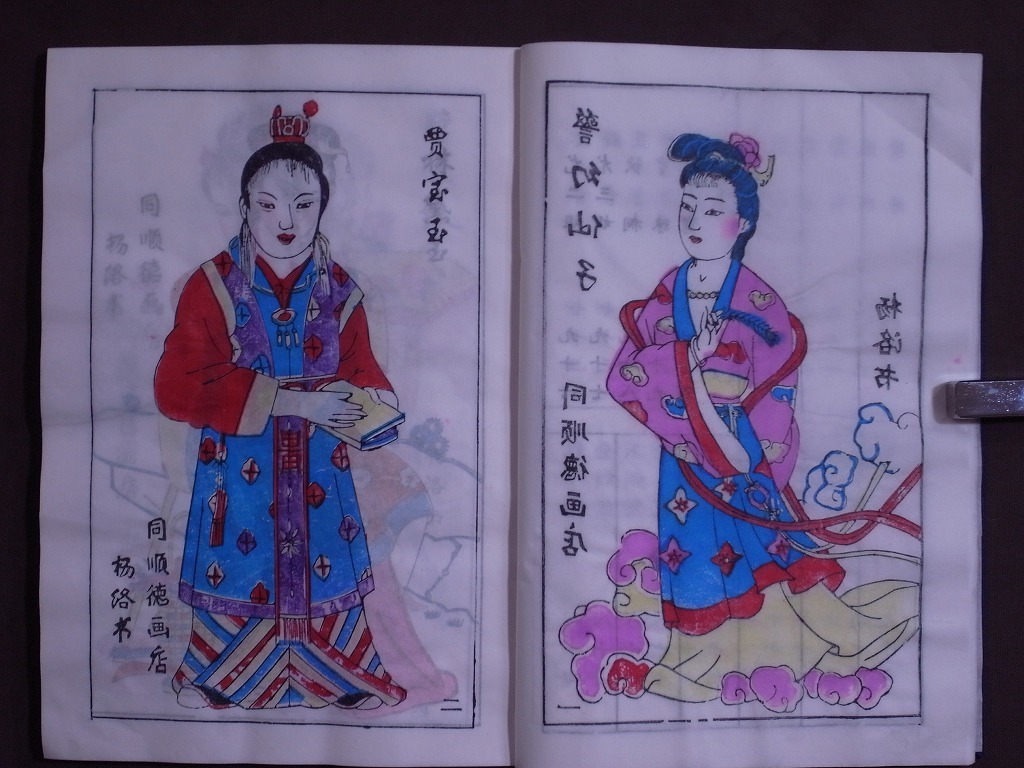 警幻仙子
同顺德画店
杨洛书
一
贾宝玉
同顺德画店
杨洛书
二